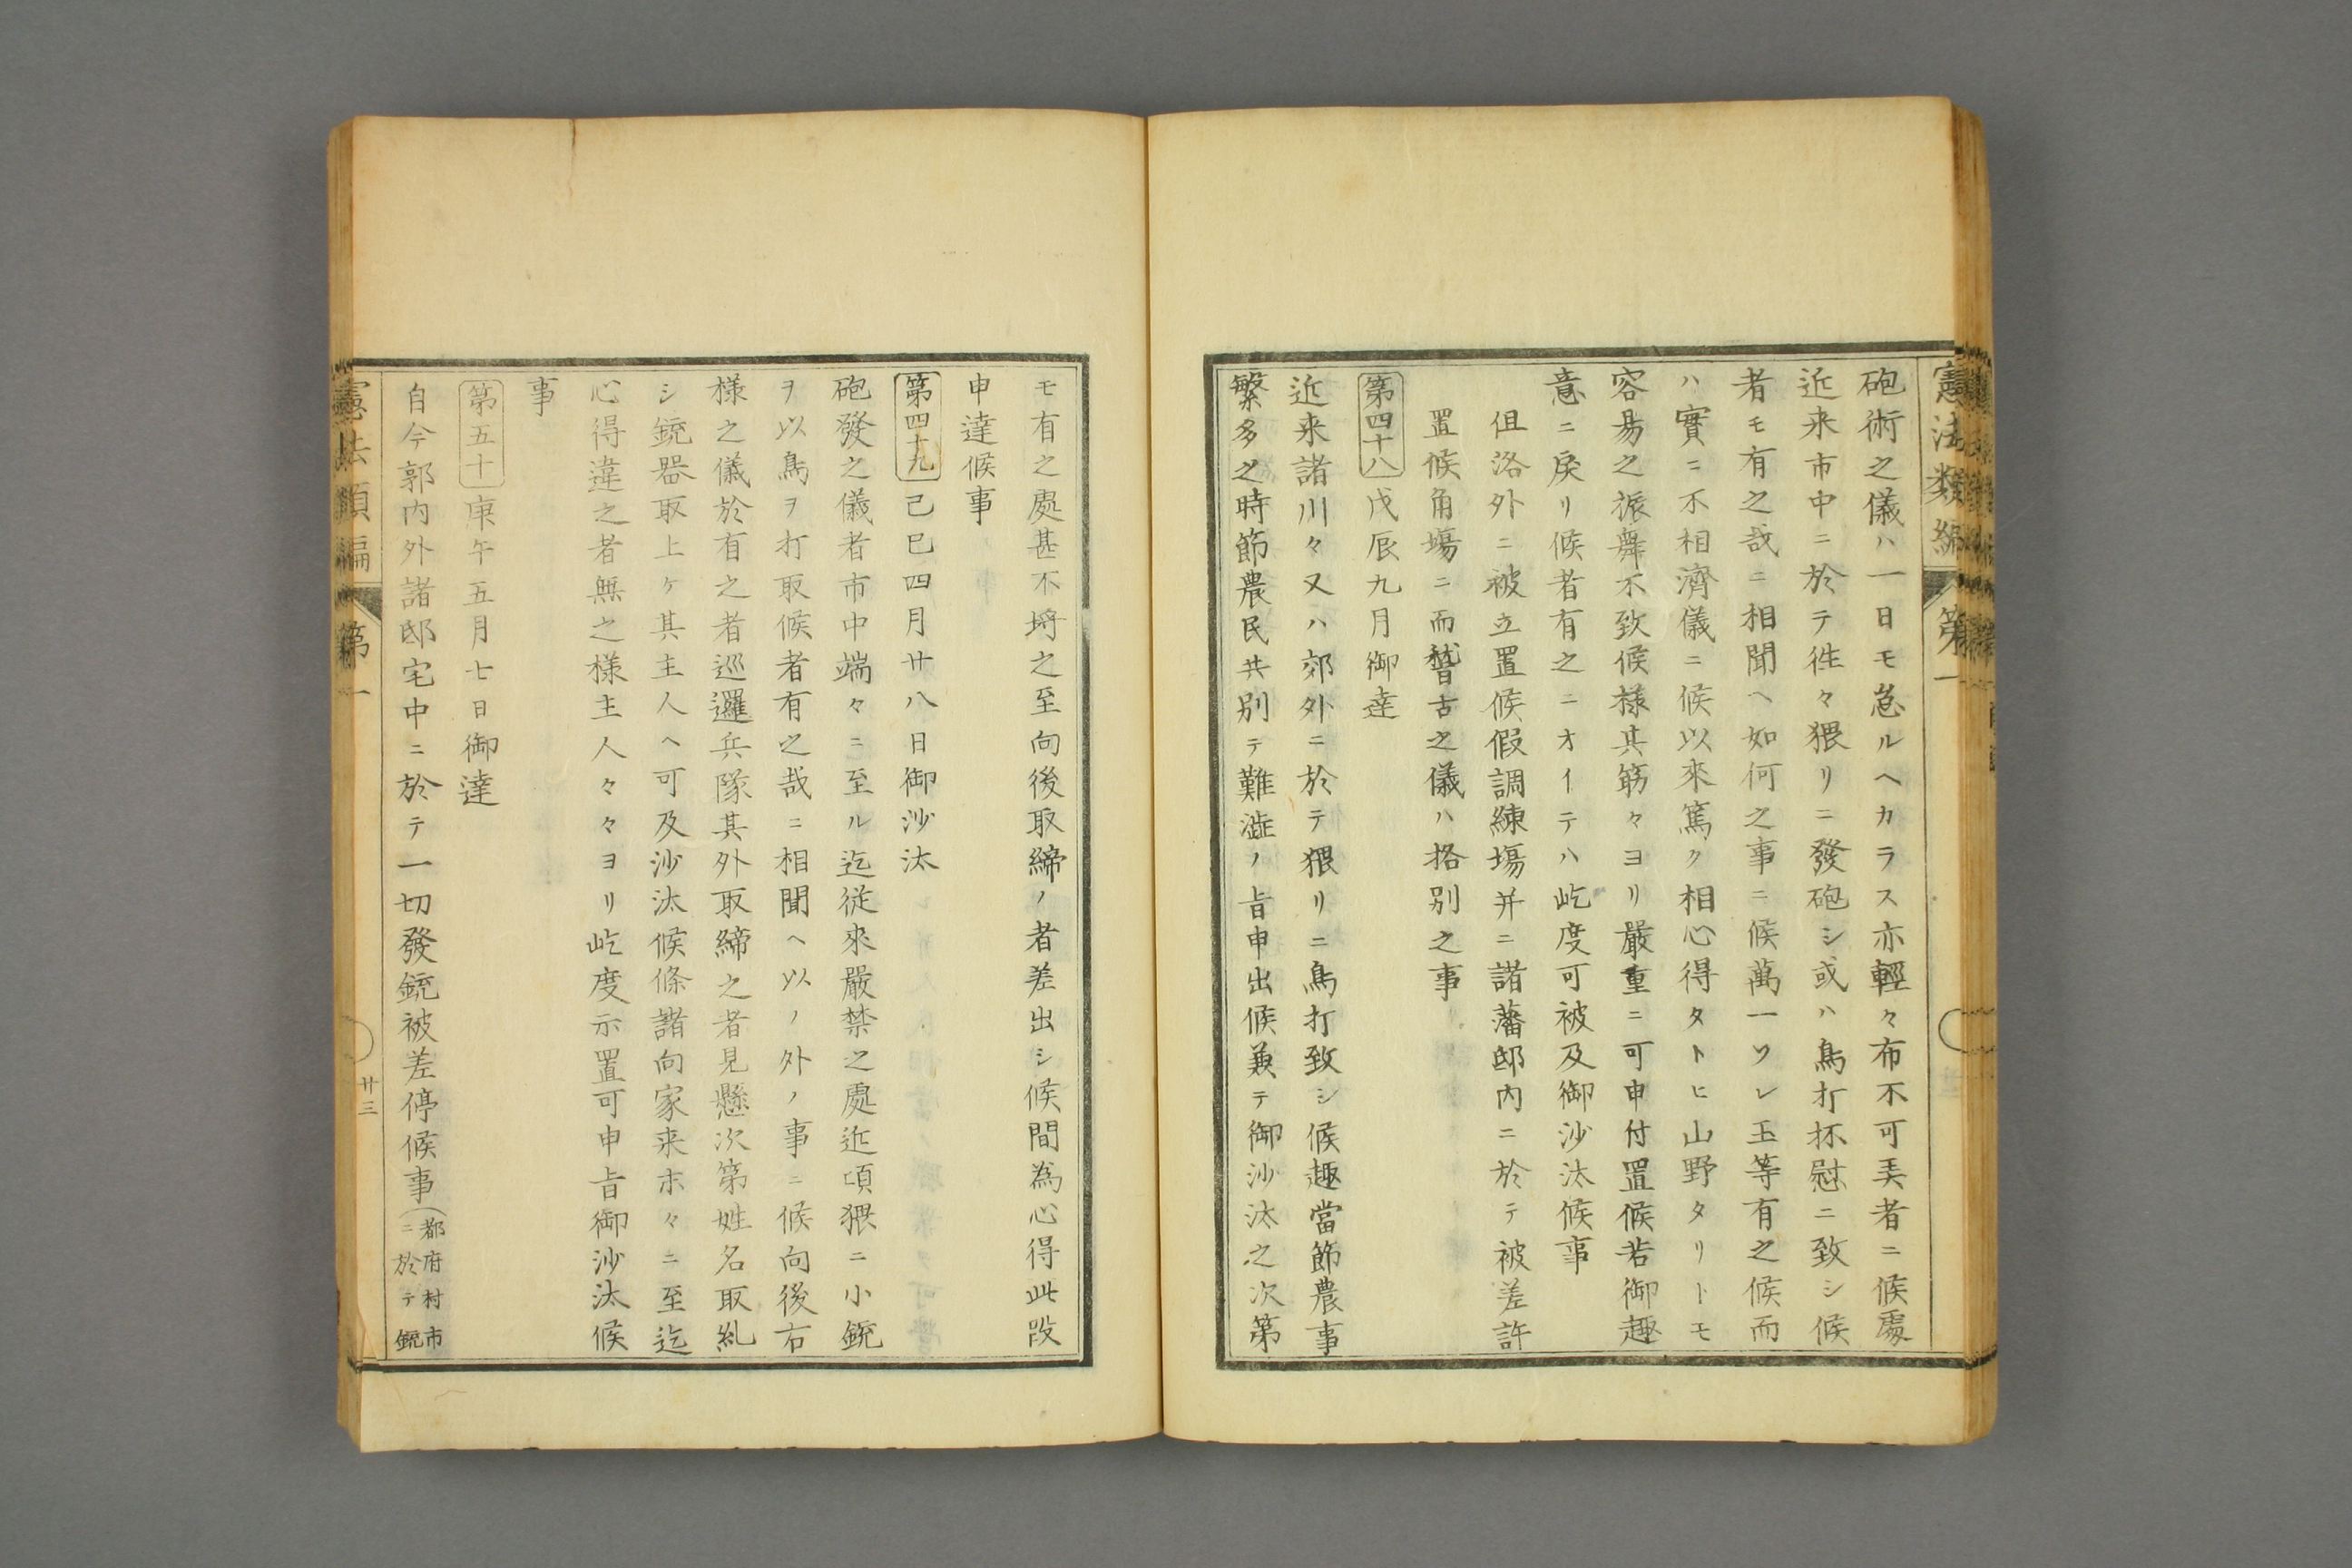 憲法類編 第一
砲術之儀ハ一日モ怠ルヘカラス亦輕々布不可弄者ニ候處
近来市中ニ於テ徃々猥リニ發砲シ或ハ鳥打抔慰ニ致シ候
者モ有之哉ニ相聞ヘ如何之事ニ候萬一ソレ玉等有之候而
ハ實ニ不相濟儀ニ候以來篤ク相心得タトヒ山野タリトモ
容易之振舞不致候様其筋々ヨリ嚴重ニ可申付置候若御趣
意ニ戻リ候者有之ニオイテハ屹度可被及御沙汰候事
但洛外ニ被立置候假調練塲并ニ諸藩邸内ニ於テ被差許
置候角塲ニ而稽古之儀ハ格別之事
第四十八 戊辰九月御達
近来諸川々又ハ郊外ニ於テ猥リニ鳥打致シ候趣當節農事
繁多之時節農民共別テ難澁ノ旨申出候兼テ御沙汰之次第
モ有之處甚不埒之至向後取締ノ者差出シ候間為心得此段
申達候事
第四十九 己巳四月廿八日御沙汰
砲發之儀者市中端々ニ至ル迄従來嚴禁之處近頃猥ニ小銃
ヲ以鳥ヲ打取候者有之哉ニ相聞ヘ以ノ外ノ事ニ候向後右
様之儀於有之者巡邏兵隊其外取締之者見懸次第姓名取糺
シ銃器取上ケ其主人ヘ可及沙汰候條諸向家来末々ニ至迄
心得違之者無之様主人々々ヨリ屹度示置可申旨御沙汰候
事
第五十 庚午五月七日御達
自今郭内外諸邸宅中ニ於テ一切發銃被差停候事(都府村市
ニ於テ銃
憲法類編 第一 廿三